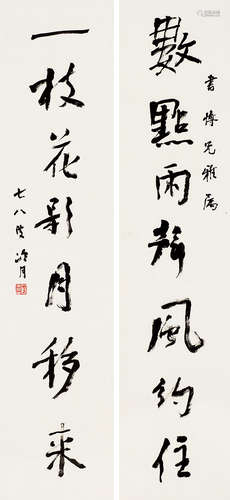 數點雨聲風約住
書 兄雅屬
一枝花影月移来
七八叟冷月